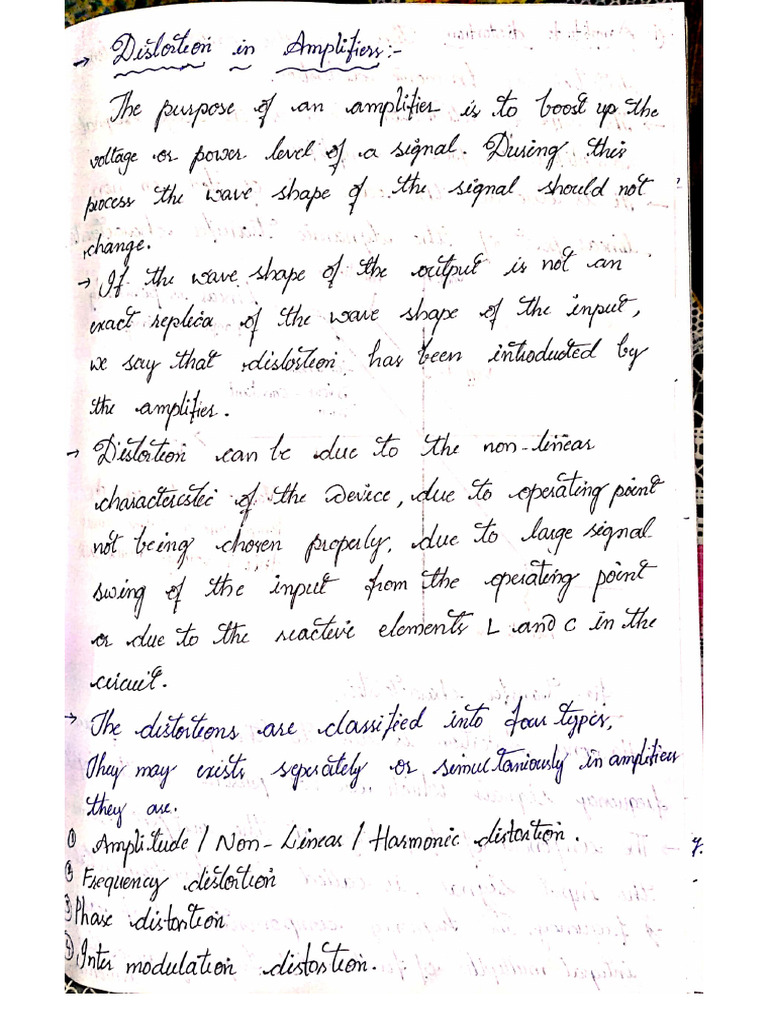 → Distortion in Amplifiers:-
The purpose of an amplifier is to boost up the
voltage or power level of a signal. During this
process the wave shape of the signal should not
change.
→ If the wave shape of the output is not an
exact replica of the wave shape of the input,
we say that distortion has been introducted by
the amplifier.
→ Distortion can be due to the non-linear
characteristic of the Device, due to operating point
not being chosen properly, due to large signal
swing of the input from the operating point
or due to the reactive elements L and C in the
circuit.
→ The distortions are classified into four types,
They may exists seperately or simultaniously in amplifier
they are.
① Amplitude / Non-Linear / Harmonic distortion.
② Frequency distortion
③ Phase distortion
④ Inter modulation distortion.